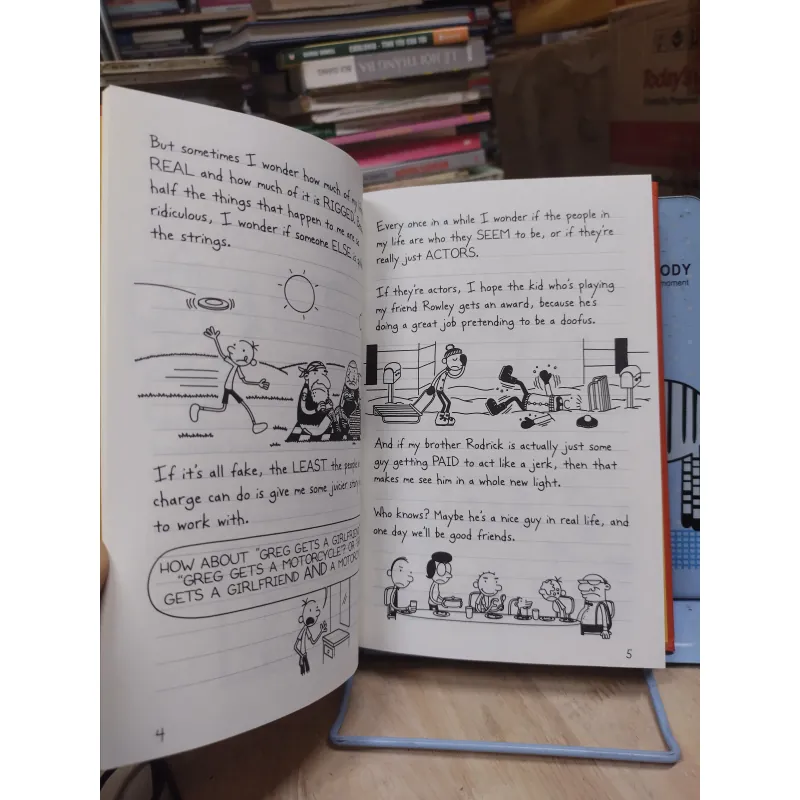 But sometimes I wonder how much of my
REAL and how much of it is RIGGED.
half the things that happen to me are so
ridiculous, I wonder if someone ELSE is
the strings.
If it's all fake, the LEAST the people
charge can do is give me some juicier
to work with.
HOW ABOUT "GREG GETS A GIRLFRIEND"
"GREG GETS A MOTORCYCLE"? OR
GETS A GIRLFRIEND AND A
4
Every once in a while I wonder if the people in
my life are who they SEEM to be, or if they're
really just ACTORS.
If they're actors, I hope the kid who's playing
my friend Rowley gets an award, because he's
doing a great job pretending to be a doofus.
And if my brother Rodrick is actually just some
guy getting PAID to act like a jerk, then that
makes me see him in a whole new light.
Who knows? Maybe he's a nice guy in real life, and
one day we'll be good friends.
5
LỄ HỘI THÁNG BA
Today's
ODY
moment